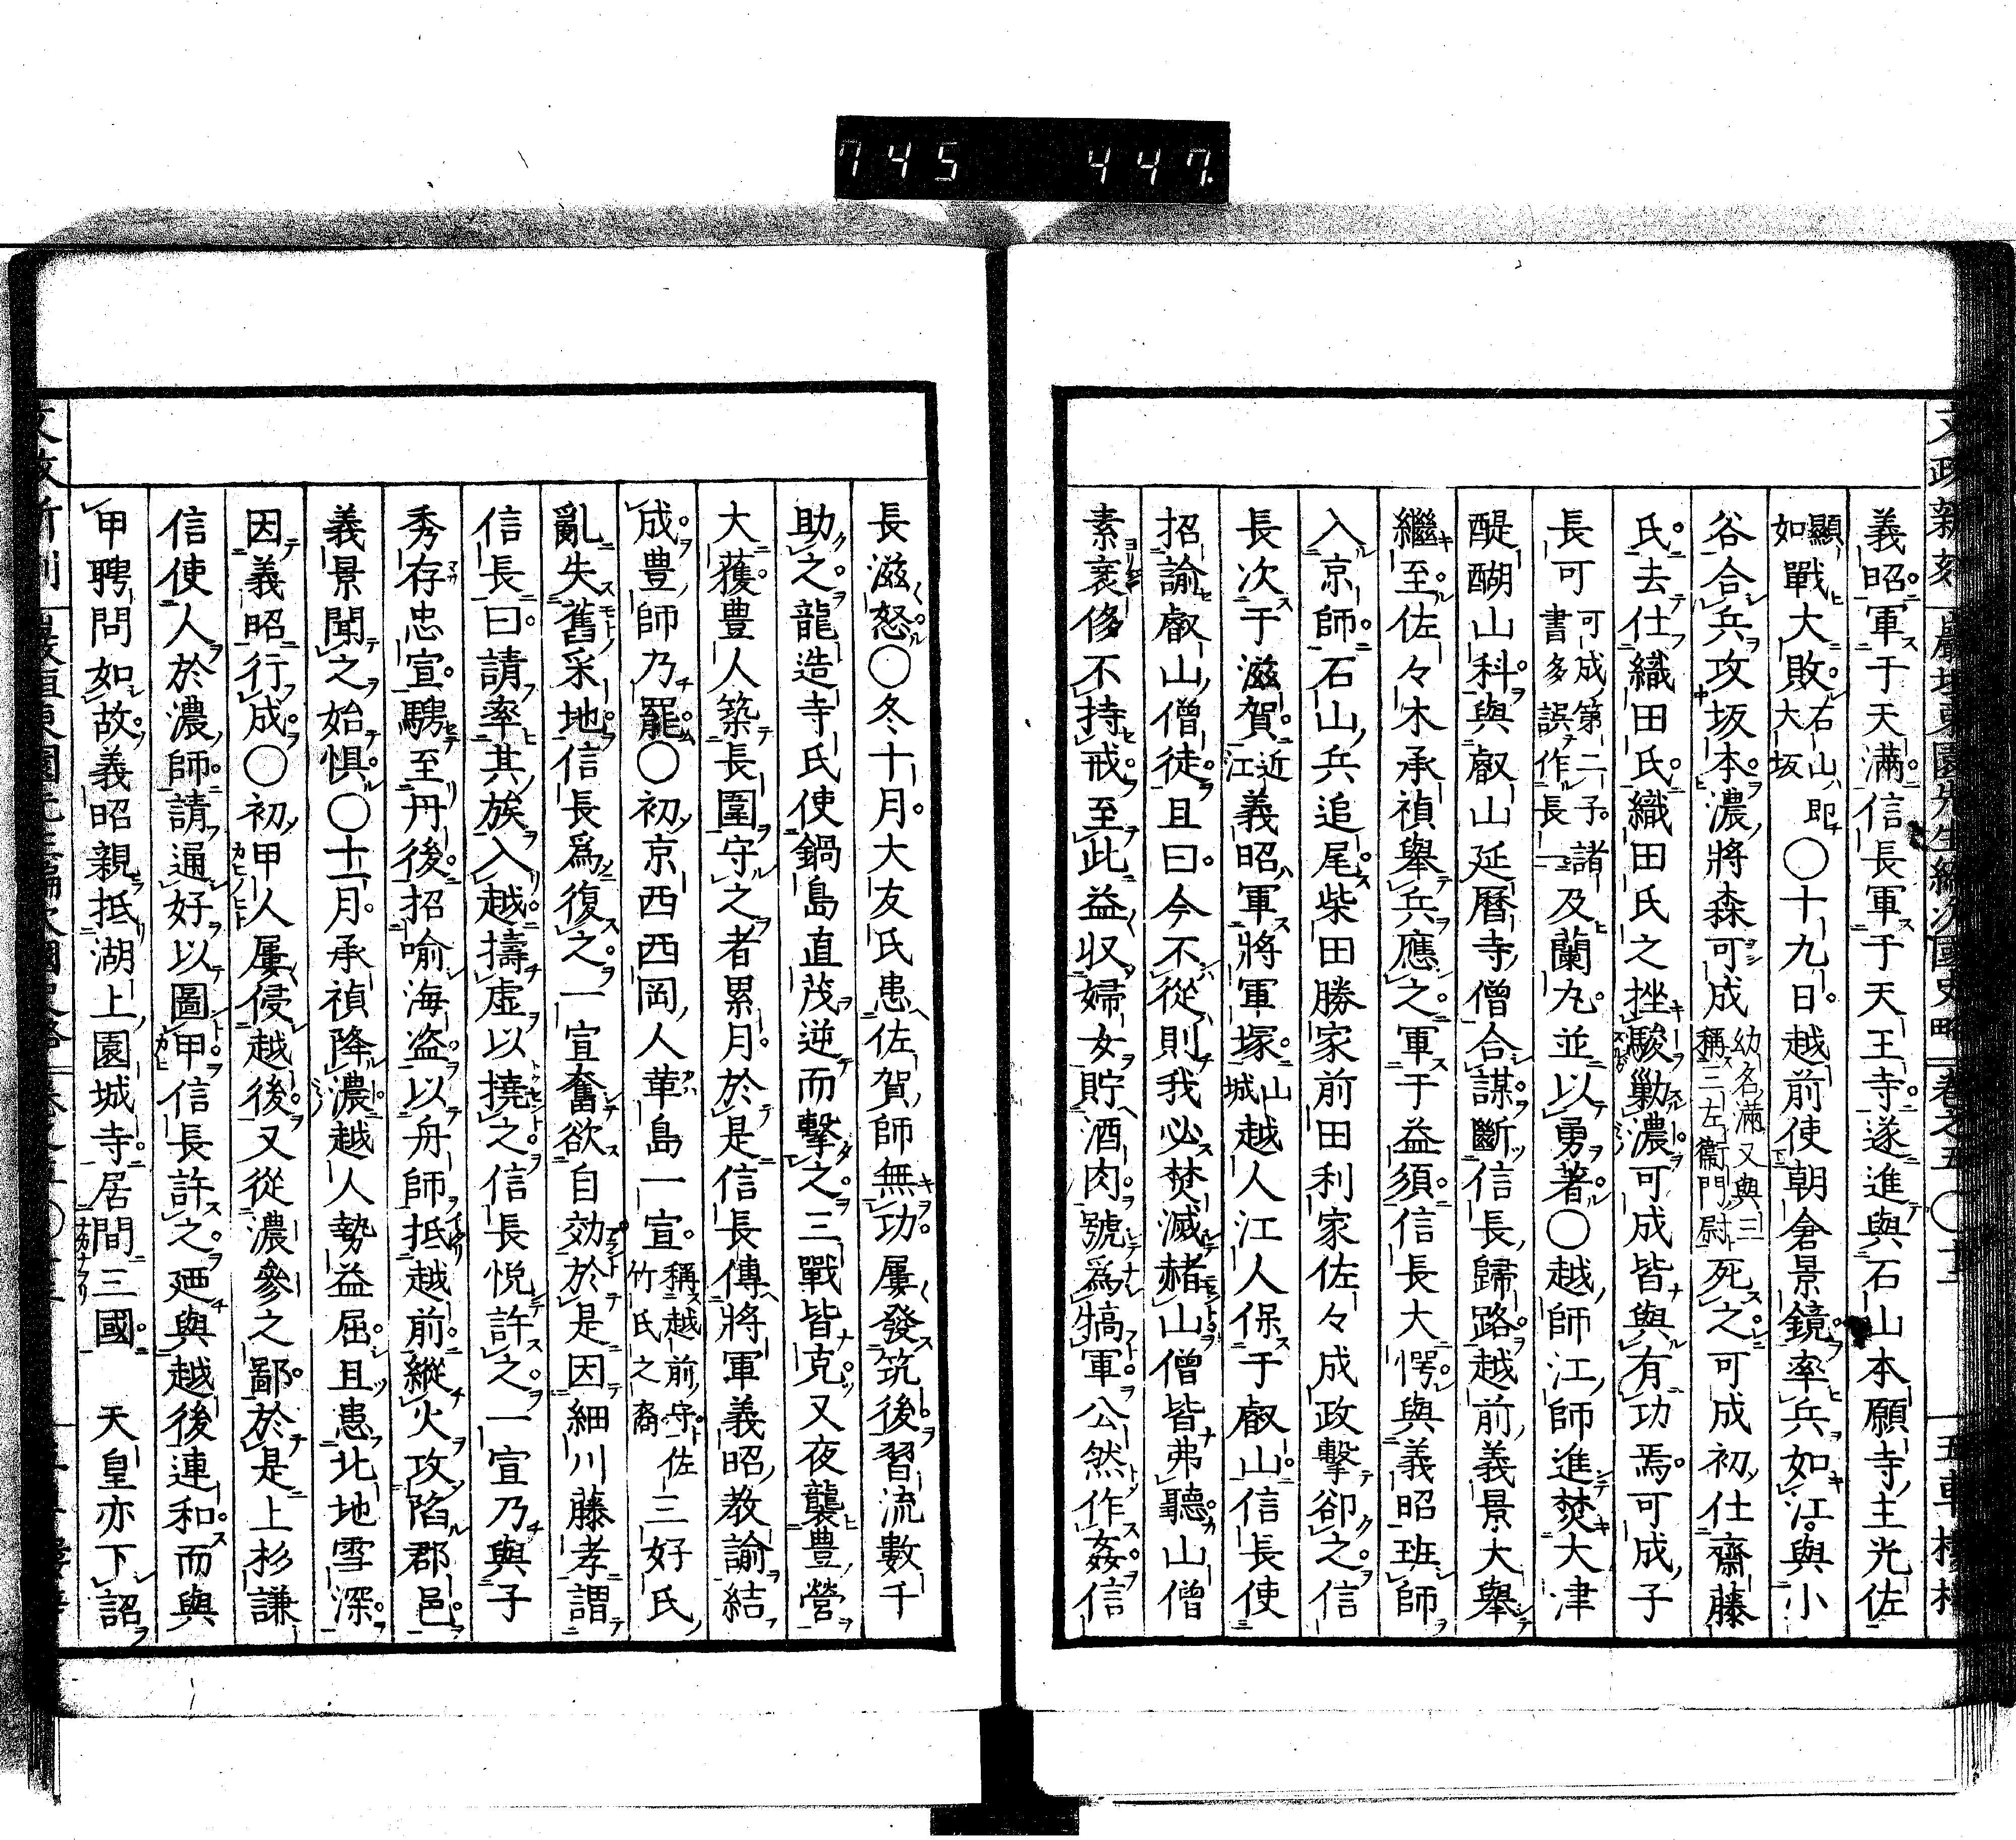 745 447.
義昭軍于天滿信長軍于天王寺遂進與石山本願寺主光佐
顯如戰大敗石山即大坂〇十九日越前使朝倉景鏡率兵如江與小
谷合兵攻坂本濃將森可成幼名滿又與三稱三左衞門尉死之可成初仕齋藤
氏去仕織田氏織田氏之挫駿勦濃可成皆與有功焉可成子
長可可成第二子諸書多誤作長一及蘭丸並以勇著〇越師江師進焚大津
醍醐山科與叡山延曆寺僧合謀斷信長歸路越前義景大舉
繼至佐々木承禎舉兵應之軍于益須信長大愕與義昭班師
入京師石山兵追尾柴田勝家前田利家佐々成政擊卻之信
長次于滋賀近江義昭軍將軍塚山城越人江人保于叡山信長使
招諭叡山僧徒且曰今不從則我必焚滅赭山僧皆弗聽山僧
素衺侈不持戒至此益收婦女貯酒肉號爲犒軍公然作姦信
長滋怒〇冬十月大友氏患佐賀師無功屢發筑後習流數千
助之龍造寺氏使鍋島直茂逆而擊之三戰皆克又夜襲豊營
大獲豊人築長圍守之者累月於是信長傳將軍義昭教諭結
成豊師乃罷〇初京西西岡人革島一宣稱越前守佐竹氏之裔三好氏
亂失舊采地信長爲復之一宣奮欲自効於是因細川藤孝謂
信長曰請率其族入越擣虛以撓之信長悅許之一宣乃與子
秀存忠宣騁至丹後招喻海盜以舟師抵越前縱火攻陷郡邑
義景聞之始惧〇十一月承禎降濃越人勢益屈且患北地雪深
因義昭行成〇初甲人屢侵越後又從濃參之鄙於是上杉謙
信使人於濃師請通好以圖甲信長許之廼與越後連和而與
甲聘問如故義昭親抵湖上園城寺居間三國 天皇亦下詔